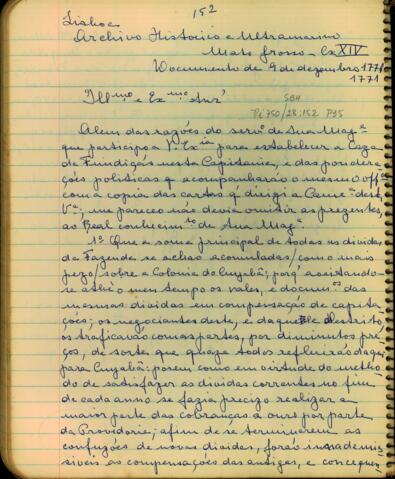 152
Lisboa
Archivo Historico e Ultramarino
Mato Grosso - Cx XIV
Documento de 9 de dezembro 1771
1771
"Ill.mo e Ex.mo Snr'
SBH
Pi 750/28:152 P95
Alem das razões do serv.o de Sua Mag.e
que participo a V. Ex.cia para estabelecer a Caza
de Fundição nesta Capitania, e das pondera-
ções politicas q' acompanharão o mesmo off.o
com a copia das cartas q' dirigi a Cam.e dest.
V.a; me pareceo não devia omitir as prezentes,
ao Real conhecim.to de Sua Mag.e
1.a Que a soma principal de todas as dividas
da Fazenda se achão acomuladas/como mais
pezo/sobre a Colonia do Cuyabá; porq' aceitando-
se athé o meu tempo os vales, e docum.os das
mesmas dividas em compensação de capita-
ções; os negociantes deste, e daquelle destrito,
os traficavão com as partes, por diminutos pre-
ços, de sortes que quaze todos refluirão daqui
para Cuyabá: porem como em virtude do metho-
do de satisfazer as dividas correntes no fim
de cada anno se fazia precizo realizar a
maior parte das cobranças a ouro por parte
da Provedoria; afim de se terminarem as
confuzões de novas dividas, forão inadmis-
siveis as compensações das antigas, e conseque